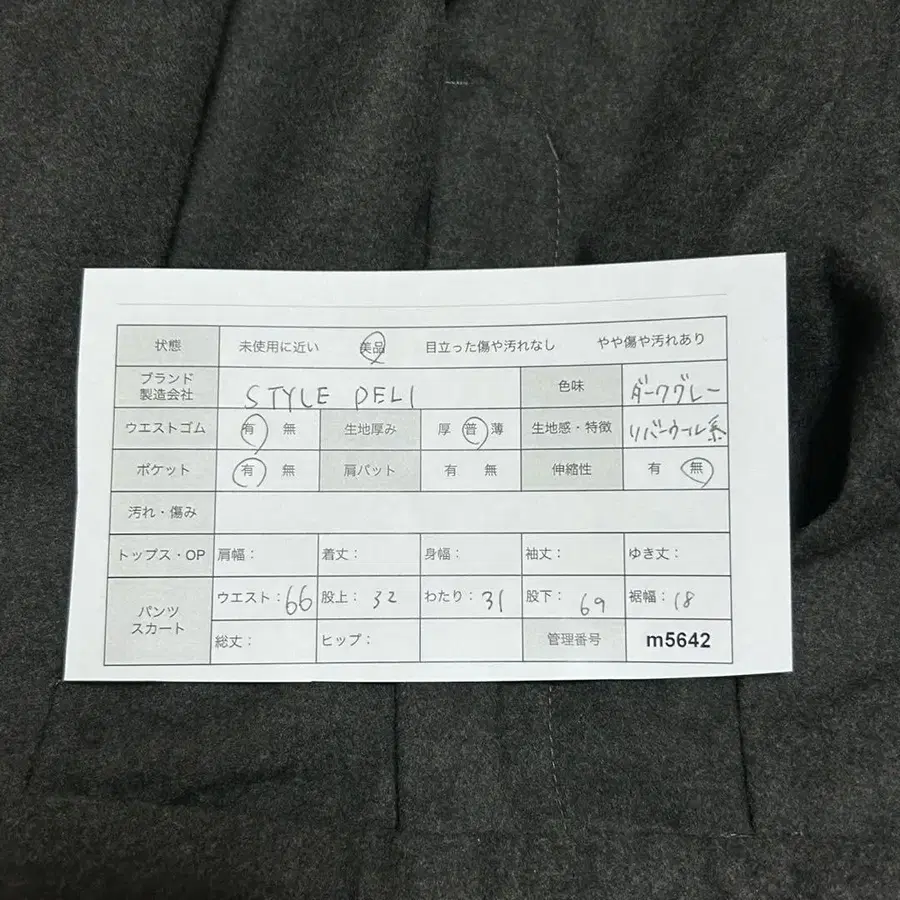 状態 未使用に近い 美品 目立った傷や汚れなし やや傷や汚れあり
ブランド
製造会社 STYLE DELI 色味 ダークグレー
ウエストゴム 有 無 生地厚み 厚 普 薄 生地感・特徴 リバーウール系
ポケット 有 無 肩パット 有 無 伸縮性 有 無
汚れ・傷み
トップス・OP 肩幅： 着丈： 身幅： 袖丈： ゆき丈：
パンツ
スカート ウエスト：66 股上：32 わたり：31 股下：69 裾幅：18
総丈： ヒップ： 管理番号 m5642